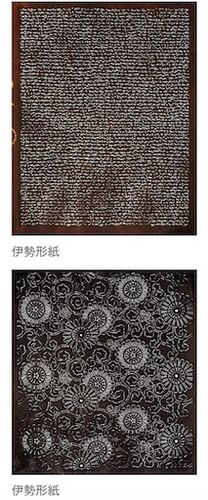 伊勢形紙
伊勢形紙